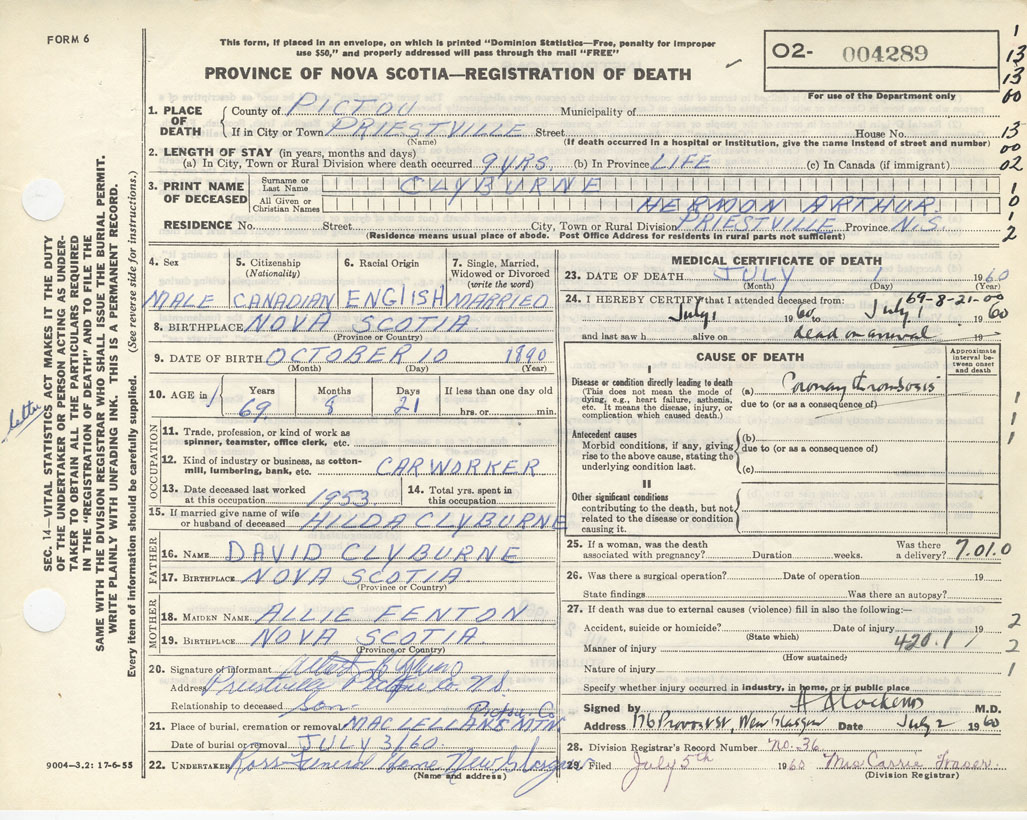 FORM 6
This form, if placed in an envelope, on which is printed "Dominion Statistics—Free, penalty for improper
use $50," and properly addressed will pass through the mail "FREE"
02- 004289
For use of the Department only
PROVINCE OF NOVA SCOTIA—REGISTRATION OF DEATH
1. PLACE OF DEATH County of PICTOU Municipality of
If in City or Town PRIESTVILLE Street House No.
(Name) (If death occurred in a hospital or institution, give the name instead of street and number)
2. LENGTH OF STAY (in years, months and days)
(a) In City, Town or Rural Division where death occurred 9 YRS. (b) In Province LIFE (c) In Canada (if immigrant)
3. PRINT NAME OF DECEASED Surname or Last Name CLYBURNE
All Given or Christian Names HERMON ARTHUR
RESIDENCE No. Street City, Town or Rural Division PRIESTVILLE Province N.S.
(Residence means usual place of abode. Post Office Address for residents in rural parts not sufficient)
1
13
13
60
13
00
02
1
0
1
2
4. Sex 5. Citizenship (Nationality) 6. Racial Origin 7. Single, Married, Widowed or Divorced (write the word)
MALE CANADIAN ENGLISH MARRIED
8. BIRTHPLACE NOVA SCOTIA
(Province or Country)
9. DATE OF BIRTH OCTOBER 10 1890
(Month) (Day) (Year)
10. AGE in Years Months Days If less than one day old
69 8 21 hrs. or min.
OCCUPATION
11. Trade, profession, or kind of work as spinner, teamster, office clerk, etc.
12. Kind of industry or business, as cotton-mill, lumbering, bank, etc. CARWORKER
13. Date deceased last worked at this occupation 1953 14. Total yrs. spent in this occupation
15. If married give name of wife or husband of deceased HILDA CLYBURNE
FATHER
16. NAME DAVID CLYBURNE
17. BIRTHPLACE NOVA SCOTIA
(Province or Country)
MOTHER
18. MAIDEN NAME ALLIE FENTON
19. BIRTHPLACE NOVA SCOTIA
(Province or Country)
20. Signature of informant
Address Priestville Pictou Co. N.S.
Relationship to deceased Son
Pictou Co
21. Place of burial, cremation or removal MACLELLANS MTN
Date of burial or removal JULY 3/60
22. UNDERTAKER Ross Funeral Home New Glasgow
(Name and address)
MEDICAL CERTIFICATE OF DEATH
23. DATE OF DEATH JULY 1 1960
(Month) (Day) (Year)
69-8-21-00
24. I HEREBY CERTIFY that I attended deceased from:
July 1 1960 to July 1 1960
and last saw h alive on dead on arrival 19
CAUSE OF DEATH
Approximate interval between onset and death
I
Disease or condition directly leading to death (This does not mean the mode of dying, e.g., heart failure, asthenia, etc. It means the disease, injury, or complication which caused death.)
(a) Coronary thrombosis
due to (or as a consequence of)
Antecedent causes
Morbid conditions, if any, giving rise to the above cause, stating the underlying condition last.
(b)
due to (or as a consequence of)
(c)
II
Other significant conditions contributing to the death, but not related to the disease or condition causing it.
1
1
1
25. If a woman, was the death associated with pregnancy? Duration weeks. Was there a delivery? 7.01.0
26. Was there a surgical operation? Date of operation 19
State findings Was there an autopsy?
27. If death was due to external causes (violence) fill in also the following:—
Accident, suicide or homicide? Date of injury 19
(State which)
Manner of injury 420.1
(How sustained)
Nature of injury
2
2
1
Specify whether injury occurred in industry, in home, or in public place
Signed by M.D.
Address 176 Provost St, New Glasgow Date July 2 1960
28. Division Registrar's Record Number No. 36
29. Filed July 5th 1960 Mrs Carrie Fraser
(Division Registrar)
SEC. 14—VITAL STATISTICS ACT MAKES IT THE DUTY
OF THE UNDERTAKER OR PERSON ACTING AS UNDER-
TAKER TO OBTAIN ALL THE PARTICULARS REQUIRED
IN THE "REGISTRATION OF DEATH" AND TO FILE THE
SAME WITH THE DIVISION REGISTRAR WHO SHALL ISSUE THE BURIAL PERMIT.
WRITE PLAINLY WITH UNFADING INK. THIS IS A PERMANENT RECORD.
Every item of information should be carefully supplied. (See reverse side for instructions.)
9004—3.2: 17-6-55